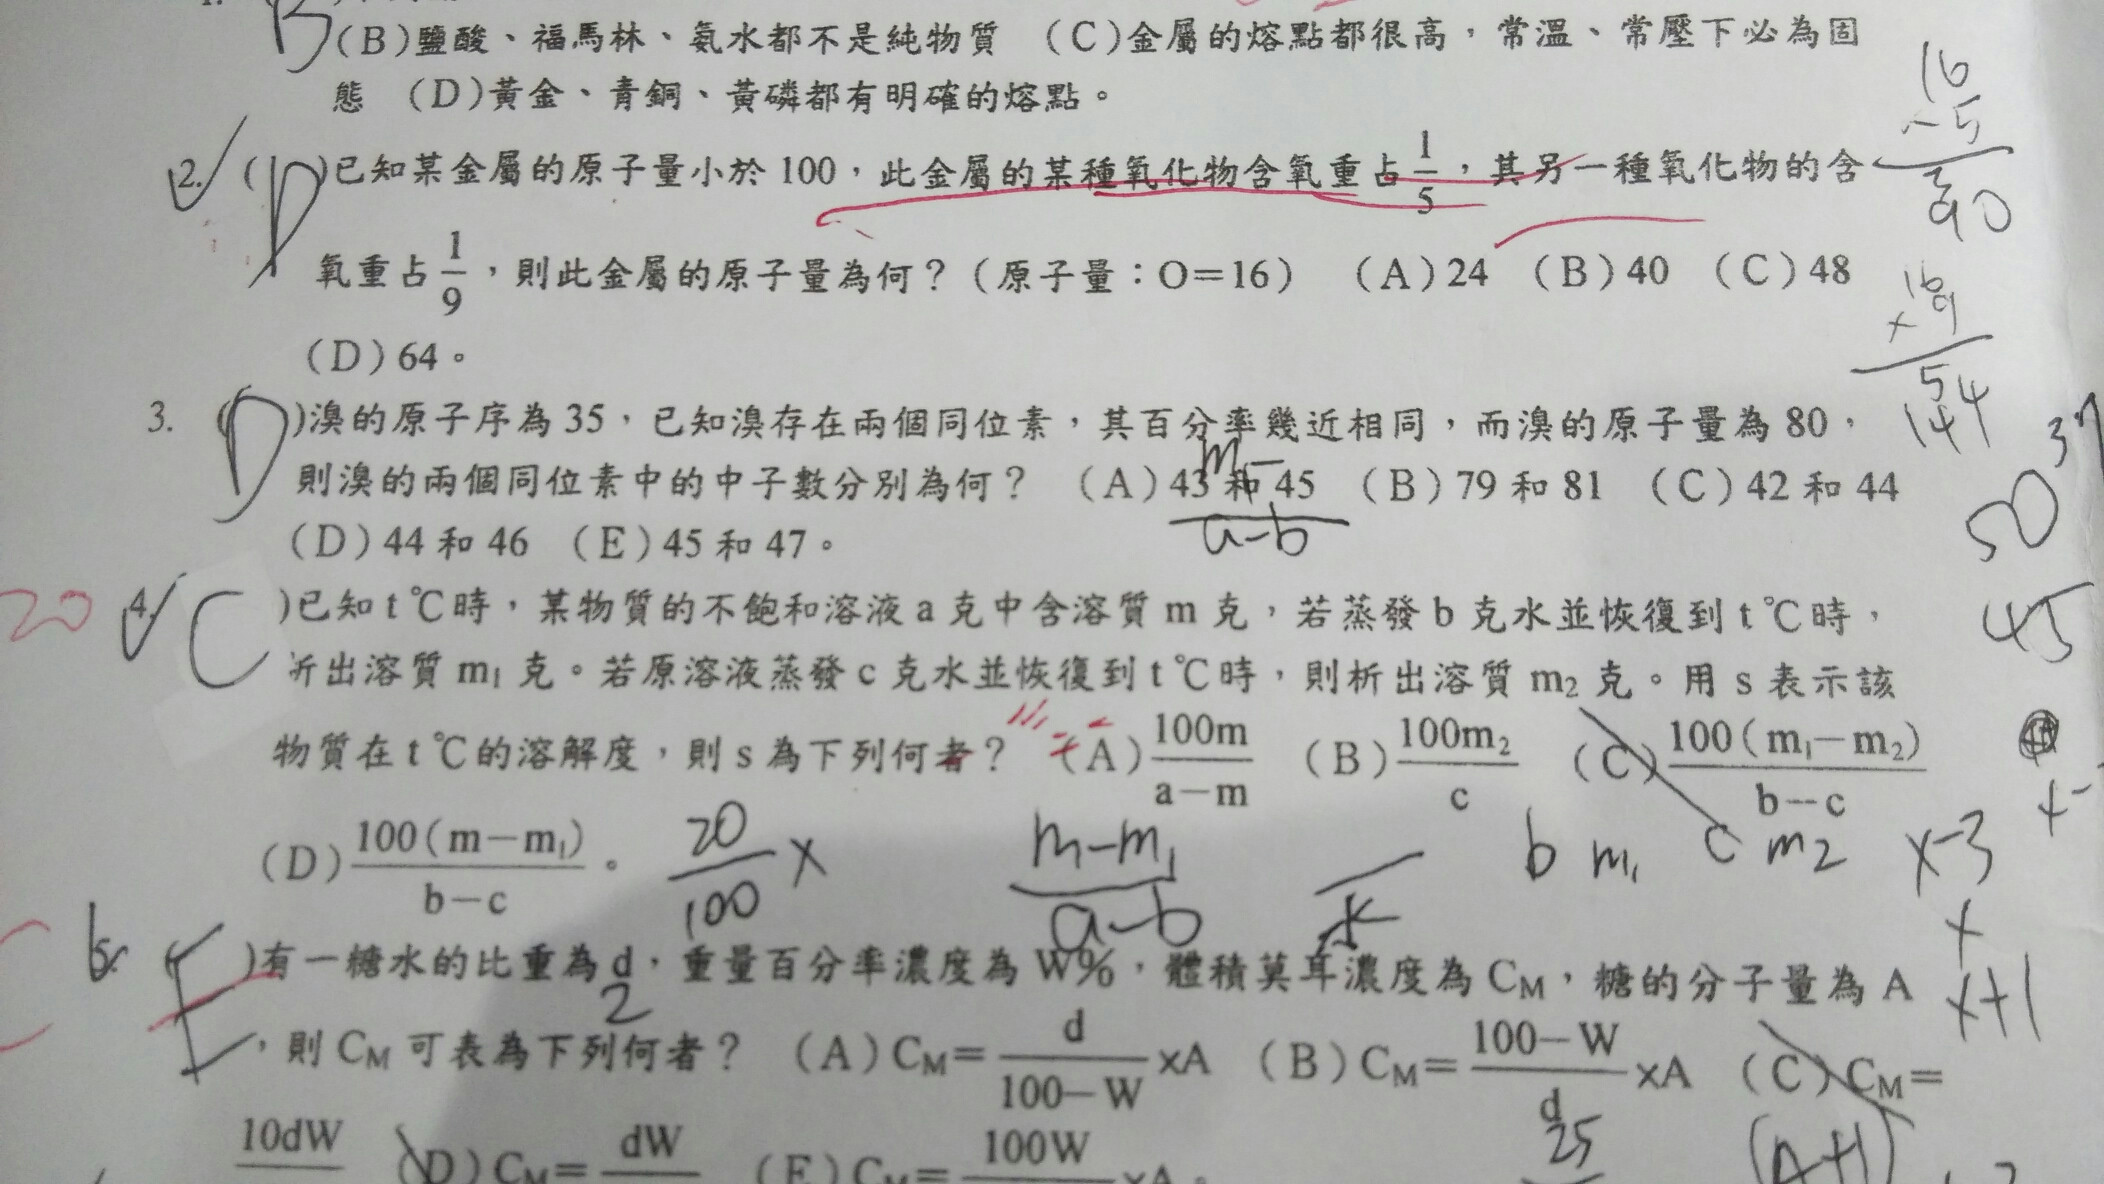 B
(B)鹽酸、福馬林、氨水都不是純物質 (C)金屬的熔點都很高，常溫、常壓下必為固
態 (D)黃金、青銅、黃磷都有明確的熔點。
2. (D)已知某金屬的原子量小於100，此金屬的某種氧化物含氧重占1/5，其另一種氧化物的含
氧重占1/9，則此金屬的原子量為何？(原子量：O=16) (A)24 (B)40 (C)48
(D)64。
3. (D)溴的原子序為35，已知溴存在兩個同位素，其百分率幾近相同，而溴的原子量為80，
則溴的兩個同位素中的中子數分別為何？ (A)43和45 (B)79和81 (C)42和44
(D)44和46 (E)45和47。
20 4. C )已知t℃時，某物質的不飽和溶液a克中含溶質m克，若蒸發b克水並恢復到t℃時，
析出溶質m₁克。若原溶液蒸發c克水並恢復到t℃時，則析出溶質m₂克。用s表示該
物質在t℃的溶解度，則s為下列何者？ (A)100m/(a－m) (B)100m₂/c (C)100(m₁－m₂)/(b－c)
(D)100(m－m₁)/(b－c)。
20/100 x
m-m₁/a-b
b m₁ c m2
x-3
x
x+1
5. ( )有一糖水的比重為d，重量百分率濃度為W%，體積莫耳濃度為C_M，糖的分子量為A
2
，則C_M可表為下列何者？ (A)C_M=d/(100－W)×A (B)C_M=(100－W)/d×A (C)C_M=
10dW (D)C_M=dW (E)C_M=100W ×A。
25
(A+1)
16
90
16
×9
54
144
m-
a-b
50
45